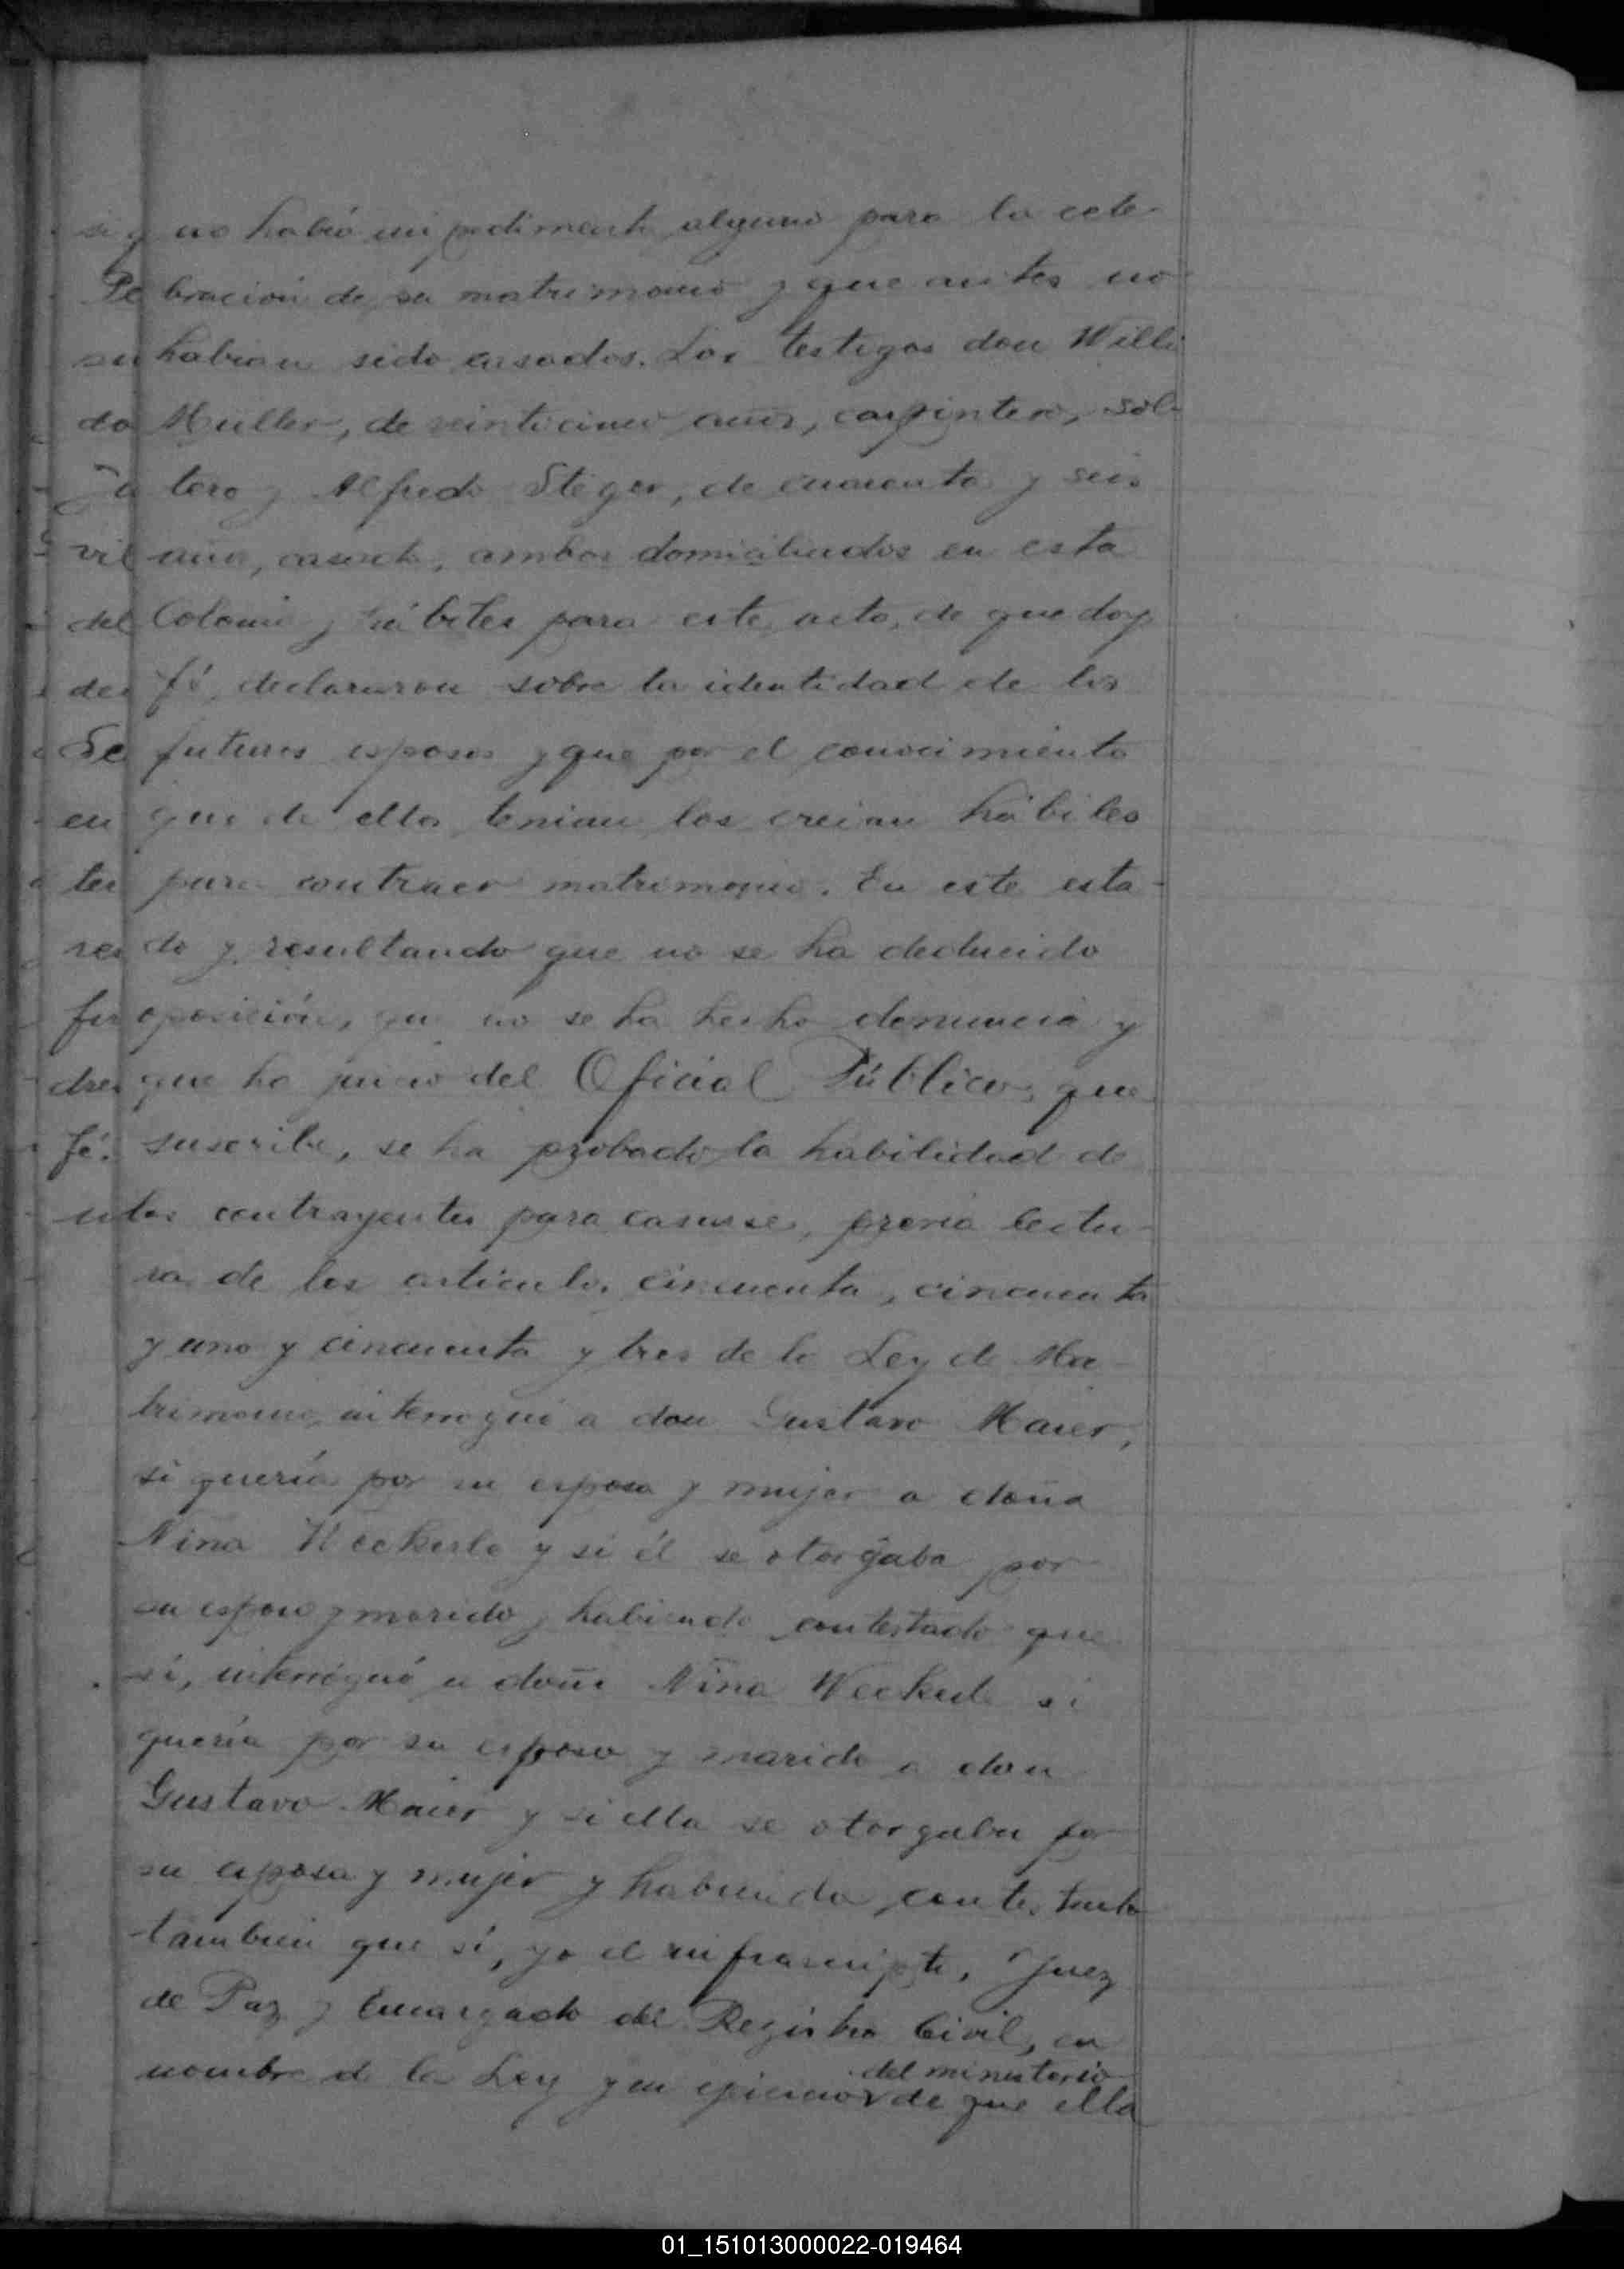 no había impedimento alguno para la cele-
bración de su matrimonio y que antes no
habian sido casados. Los testigos don Willi
Muller, de veinticinco años, carpintero, sol-
tero y Alfredo Steger, de cuarenta y seis
años, casado, ambos domiciliados en esta
Colonia y hábiles para este acto, de que doy
fé, declararon sobre la identidad de los
futuros esposos y que por el conocimiento
que de ellos tenian los creian hábiles
para contraer matrimonio. En este esta-
do y resultando que no se ha deducido
oposición, que no se ha hecho denuncia y
que ha juicio del Oficial Público, que
suscribe, se ha probado la habilidad de
los contrayentes para casarse, previa lectu-
ra de los articulos cincuenta, cincuenta
y uno y cincuenta y tres de la Ley de Ma-
trimonio, interrogué a don Gustavo Maier,
si quería por su esposa y mujer a doña
Nina Weckerle y si él se otorgaba por
su esposo y marido y habiendo contestado que
sí, interrogué a doña Nina Weckerle si
quería por su esposo y marido a don
Gustavo Maier y si ella se otorgaba por
su esposa y mujer y habiendo contestado
tambien que sí, yo el infrascripto, Juez
de Paz y Encargado del Registro Civil, en
del ministerio
nombre de la Ley y en ejercicio de que ella
01_151013000022-019464